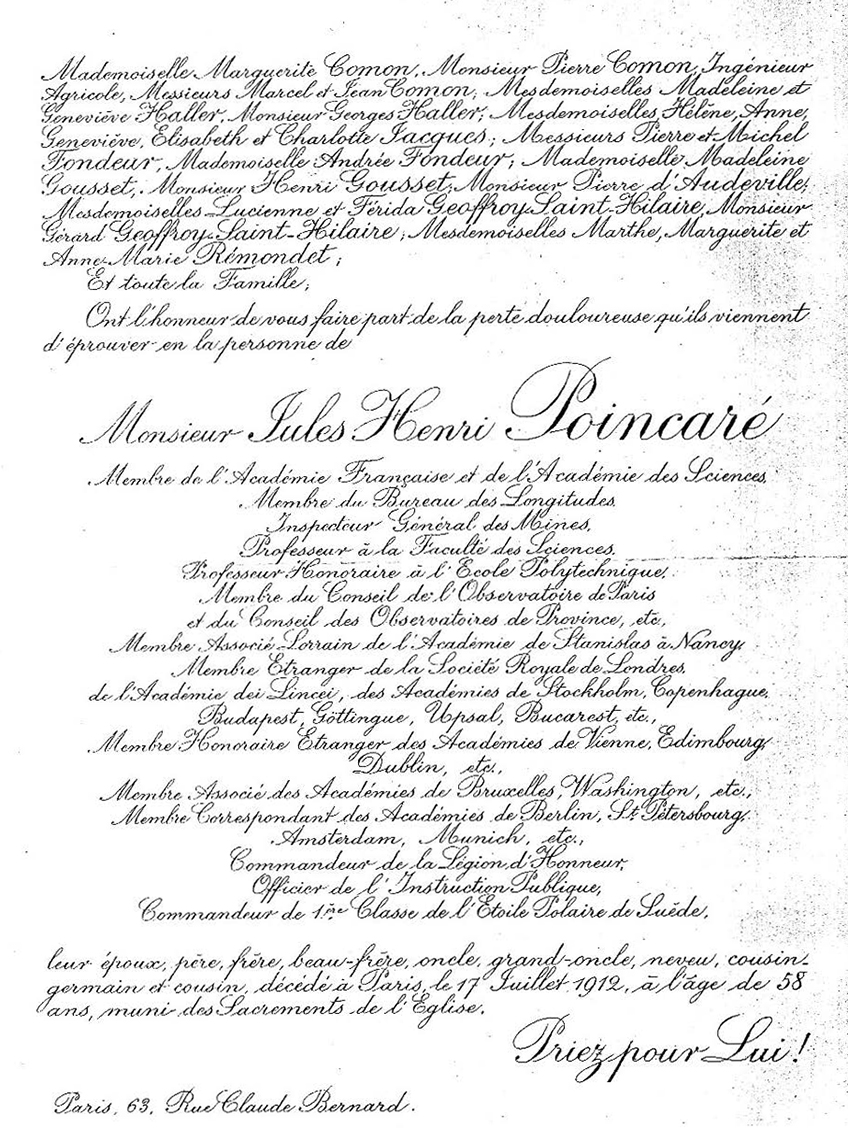 Mademoiselle Marguerite Comon, Monsieur Pierre Comon, Ingénieur
Agricole, Messieurs Marcel et Jean Comon; Mesdemoiselles Madeleine et
Geneviève Haller, Monsieur Georges Haller; Mesdemoiselles Hélène, Anne,
Geneviève, Elisabeth et Charlotte Jacques; Messieurs Pierre et Michel
Fondeur, Mademoiselle Andrée Fondeur; Mademoiselle Madeleine
Gousset, Monsieur Henri Gousset; Monsieur Pierre d'Audeville;
Mesdemoiselles Lucienne et Férida Geoffroy Saint-Hilaire, Monsieur
Gérard Geoffroy Saint-Hilaire; Mesdemoiselles Marthe, Marguerite et
Anne-Marie Rémondet;
Et toute la Famille;
Ont l'honneur de vous faire part de la perte douloureuse qu'ils viennent
d'éprouver en la personne de
Monsieur Jules Henri Poincaré
Membre de l'Académie Française et de l'Académie des Sciences,
Membre du Bureau des Longitudes,
Inspecteur Général des Mines,
Professeur à la Faculté des Sciences,
Professeur Honoraire à l'Ecole Polytechnique,
Membre du Conseil de l'Observatoire de Paris
et du Conseil des Observatoires de Province, etc.,
Membre Associé Lorrain de l'Académie de Stanislas à Nancy,
Membre Etranger de la Société Royale de Londres,
de l'Académie dei Lincei, des Académies de Stockholm, Copenhague,
Budapest, Göttingue, Upsal, Bucarest, etc.,
Membre Honoraire Etranger des Académies de Vienne, Edimbourg,
Dublin, etc.,
Membre Associé des Académies de Bruxelles, Washington, etc.,
Membre Correspondant des Académies de Berlin, St. Pétersbourg,
Amsterdam, Munich, etc.,
Commandeur de la Légion d'Honneur,
Officier de l'Instruction Publique,
Commandeur de 1ère Classe de l'Etoile Polaire de Suède,
leur époux, père, frère, beau-frère, oncle, grand-oncle, neveu, cousin-
germain et cousin, décédé à Paris, le 17 Juillet 1912, à l'âge de 58
ans, muni des Sacrements de l'Eglise.
Priez pour Lui!
Paris, 63, Rue Claude Bernard.